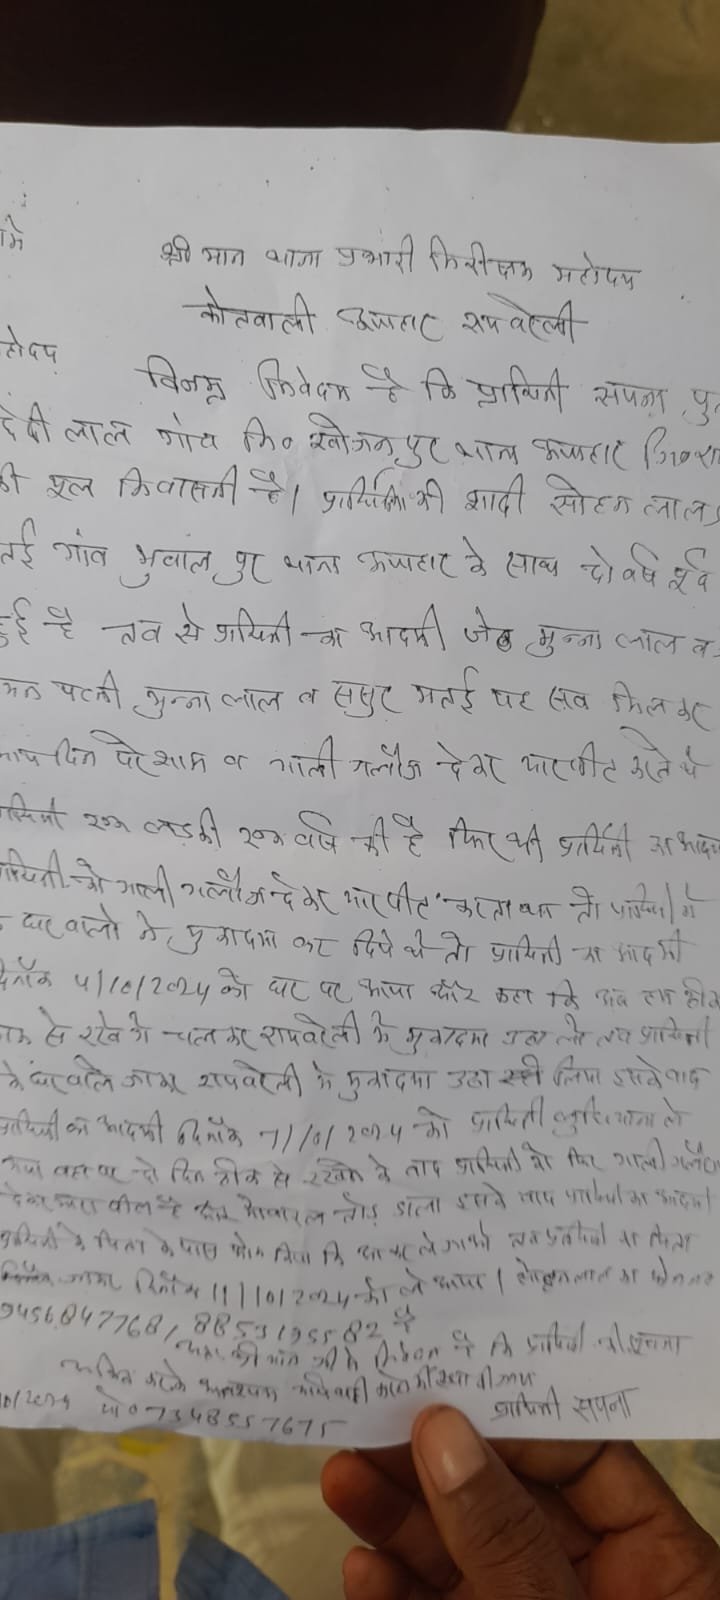 श्री मान थाना प्रभारी निरीक्षक महोदय
कोतवाली ऊंचाहार रायबरेली
विनम्र निवेदन है कि प्रार्थिनी सपना
देवी लाल गांव नि० खोजनपुर थाना ऊंचाहार
की मूल निवासनी है। प्रार्थिनी की शादी सोहन लाल
गांव भुवालपुर थाना ऊंचाहार के साथ दो वर्ष पूर्व
हुई है तब से प्रार्थिनी का आदमी जेठ मुन्ना लाल व
पत्नी मुन्ना लाल व ससुर मतई यह सब मिलकर
आये दिन परेशान व गाली गलौज देकर मारपीट करते थे
एक लड़की एक वर्ष की है फिर भी प्रार्थिनी का आदमी
प्रार्थिनी को गाली गलौज देकर मारपीट करता था तो प्रार्थिनी
के घर वालो ने मुकादमा कर दिये थे तो प्रार्थिनी का आदमी
दिनाँक 4/10/2024 को घर पर आया और कहा कि अब हम ठीक
से रखेंगे चलकर रायबरेली के मुकादमा उठा लो तब प्रार्थिनी
के घरवाले जाकर रायबरेली के मुकादमा उठा लिया इसके बाद
प्रार्थिनी का आदमी दिनाँक 7/10/2024 को प्रार्थिनी लुधियाना ले
गया वहा पर दो दिन ठीक से रखने के बाद प्रार्थिनी को फिर गाली गलौज
देकर मारा पीटा है और मोबाइल तोड़ डाला इसके बाद प्रार्थिनी का आदमी
प्रार्थिनी के पिता के पास फोन किया कि आकर ले जाओ तब प्रार्थिनी का पिता
जाकर दिनाँक 11/10/2024 को ले आया। सोहनलाल का फोन नं०
9456847768, 8853195582 है
अतः श्री मान जी से निवेदन है कि प्रार्थिनी की सूचना
अंकित करके आवश्यक कार्यवाही करने की कृपा की जाय
मो० 07348557675 प्रार्थिनी सपना